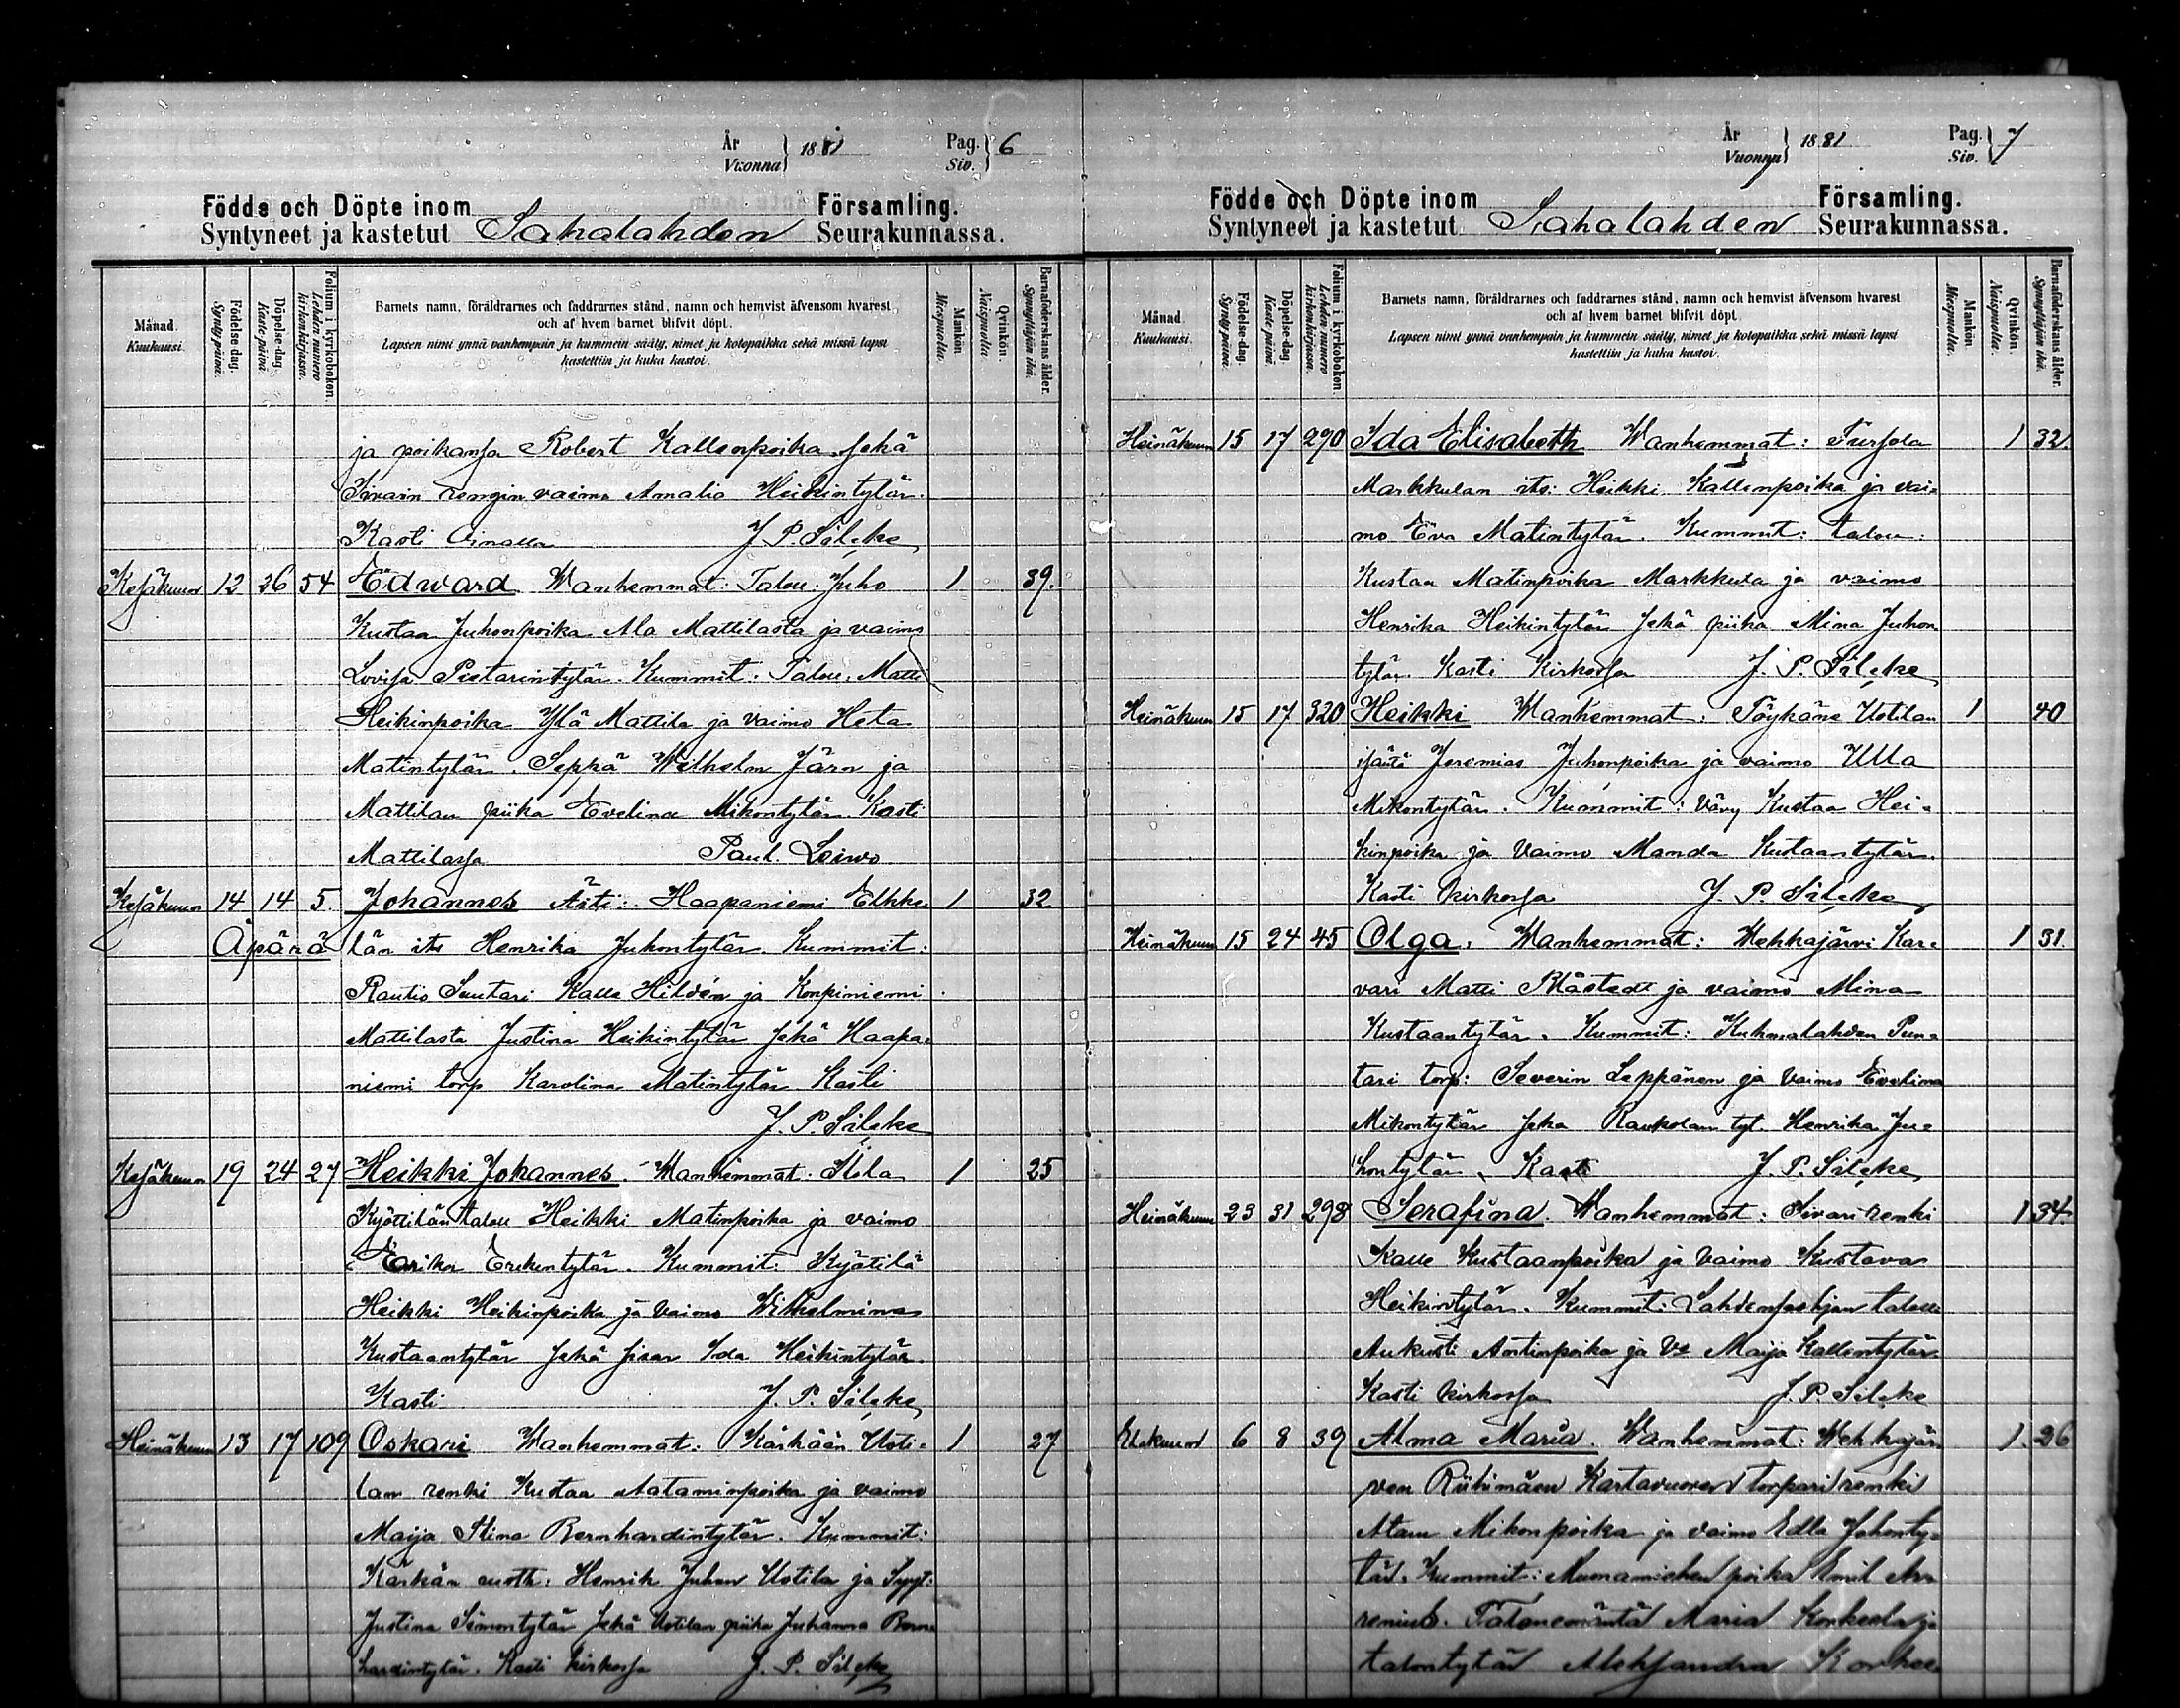 År
Vuonna } 1881
Pag.
Siv. } 6
Födde och Döpte inom Församling.
Syntyneet ja kastetut Sahalahden Seurakunnassa.
Månad.
Kuukausi.
Födelse-dag.
Synty päivä.
Döpelse-dag.
Kaste päivä
Folium i kyrkoboken.
Lehden numero kirkonkirjassa.
Barnets namn, föräldrarnes och faddrarnes stånd, namn och hemvist äfvensom hvarest
och af hvem barnet blifvit döpt.
Lapsen nimi ynnä vanhempain ja kummein sääty, nimet ja kotopaikka sekä missä lapsi
kastettiin ja kuka kastoi.
Mankön
Miespuolia.
Qvinkön.
Naispuolia.
Barnaföderskans ålder.
Synnyttäjän ikä.
ja poikansa Robert Kallenpoika sekä
Sivarin rengin vaimo Amalia Heikintytär.
Kasti J. P. Sileke
Kesäkuun 12 26 54 Edward Wanhemmat: Talou: Juho 1 39.
Kustaa Juhonpoika Ala Mattilasta ja vaimo
Lovisa Pietarintytär. Kummit: Talou: Matti
Heikinpoika Ylä Mattila ja vaimo Heta
Matintytär. Seppä Wilhelm Järn ja
Mattilan piika Evelina Mikontytär. Kasti
Mattilassa Paul. Leiwo
Kesäkuun 14 14 5. Johannes Äiti: Haapaniemi Elkke= 1 32
Äpärä län its Henrika Juhontytär. Kummit:
Rautio Suutari Kalle Hildén ja Konpiniemi
Mattilasta Justina Heikintytär sekä Haapa=
niemi torp Karolina Matintytär Kasti
J. P. Sileke
Kesäkuun 19 24 27 Heikki Johannes. Wanhemmat: 1 25
Kyöttilän talou Heikki Matinpoika ja vaimo
Erika Erikintytär. Kummit: Kyötilä
Heikki Heikinpoika ja vaimo Wilhelmina
Kustaantytär sekä sisar Ida Heikintytär.
Kasti J. P. Sileke
Heinäkuun 13 17 109 Oskari Wanhemmat: Kärkään Uoti= 1 27
lan renki Kustaa Aataminpoika ja vaimo
Maija Stina Bernhardintytär. Kummit:
Kärkän Henrik Juhan Uotila ja
Justina Simontytär sekä Uotilan piika Juhanna Bern=
hardintytär. Kasti kirkossa J. P. Sileke
År
Vuonna } 1881
Pag.
Siv. } 7
Födde och Döpte inom Församling.
Syntyneet ja kastetut Sahalahden Seurakunnassa.
Månad
Kuukausi.
Födelse-dag.
Synty päivä.
Döpelse-dag
Kaste päivä.
Folium i kyrkoboken
Lehden numero kirkonkirjassa.
Barnets namn, föräldrarnes och faddrarnes stånd, namn och hemvist äfvensom hvarest
och af hvem barnet blifvit döpt.
Lapsen nimi ynnä vanhempain ja kummein sääty, nimet ja kotopaikka sekä missä lapsi
kastettiin ja kuka kastoi.
Mankön
Miespuolia.
Qvinkön.
Naispuolia.
Barnaföderskans ålder.
Synnyttäjän ikä.
Heinäkuun 15 17 290 Ida Elisabeth Wanhemmat: Tursola 1 32.
Markkulan its: Heikki Kallenpoika ja vai=
mo Eva Matintytär. Kummit: talou:
Kustaa Matinpoika Markkula ja vaimo
Henrika Heikintytär sekä piika Mina Juhon
tytär. Kasti kirkossa J. P. Sileke
Heinäkuun 15 17 320 Heikki Wanhemmat: Töykänä Uotilan 1 40
isäntä Jeremias Juhonpoika ja vaimo Ulla
Mikontytär. Kummit: Vävy Kustaa Hei=
kinpoika ja vaimo Manda Kustaantytär.
Kasti kirkossa J. P. Sileke
Heinäkuun 15 24 45 Olga. Wanhemmat: Wehkajärvi Kar= 1 31.
vari Matti Blåstedt ja vaimo Mina
Kustaantytär. Kummit: Kuhmalahden Pun=
tari torp: Severin Leppänen ja vaimo Evelina
Mikontytär sekä Raukolan tyt. Henrika Ju=
hontytär. Kasti J. P. Sileke
Heinäkuun 23 31 298 Serafina. Wanhemmat: Sivari renki 1 34.
Kalle Kustaanpoika ja vaimo Kustava
Heikintytär. Kummit: Lahdenpohjan
Aukusti Antinpoika ja Vo Maija Kallentytär
Kasti kirkossa J. P. Sileke
Elokuun 6 8 39 Alma Maria. Wanhemmat: Wehkajär= 1. 26
ven Riihimäen Kartavuoren torpari renki
Atam Mikonpoika ja vaimo Edla Johonty=
tär. Kummit: Nuumamiehen poika Emil Ar=
renius. Talonemäntä Maria Konkeala ja
talontytär Aleksandra Korkee=